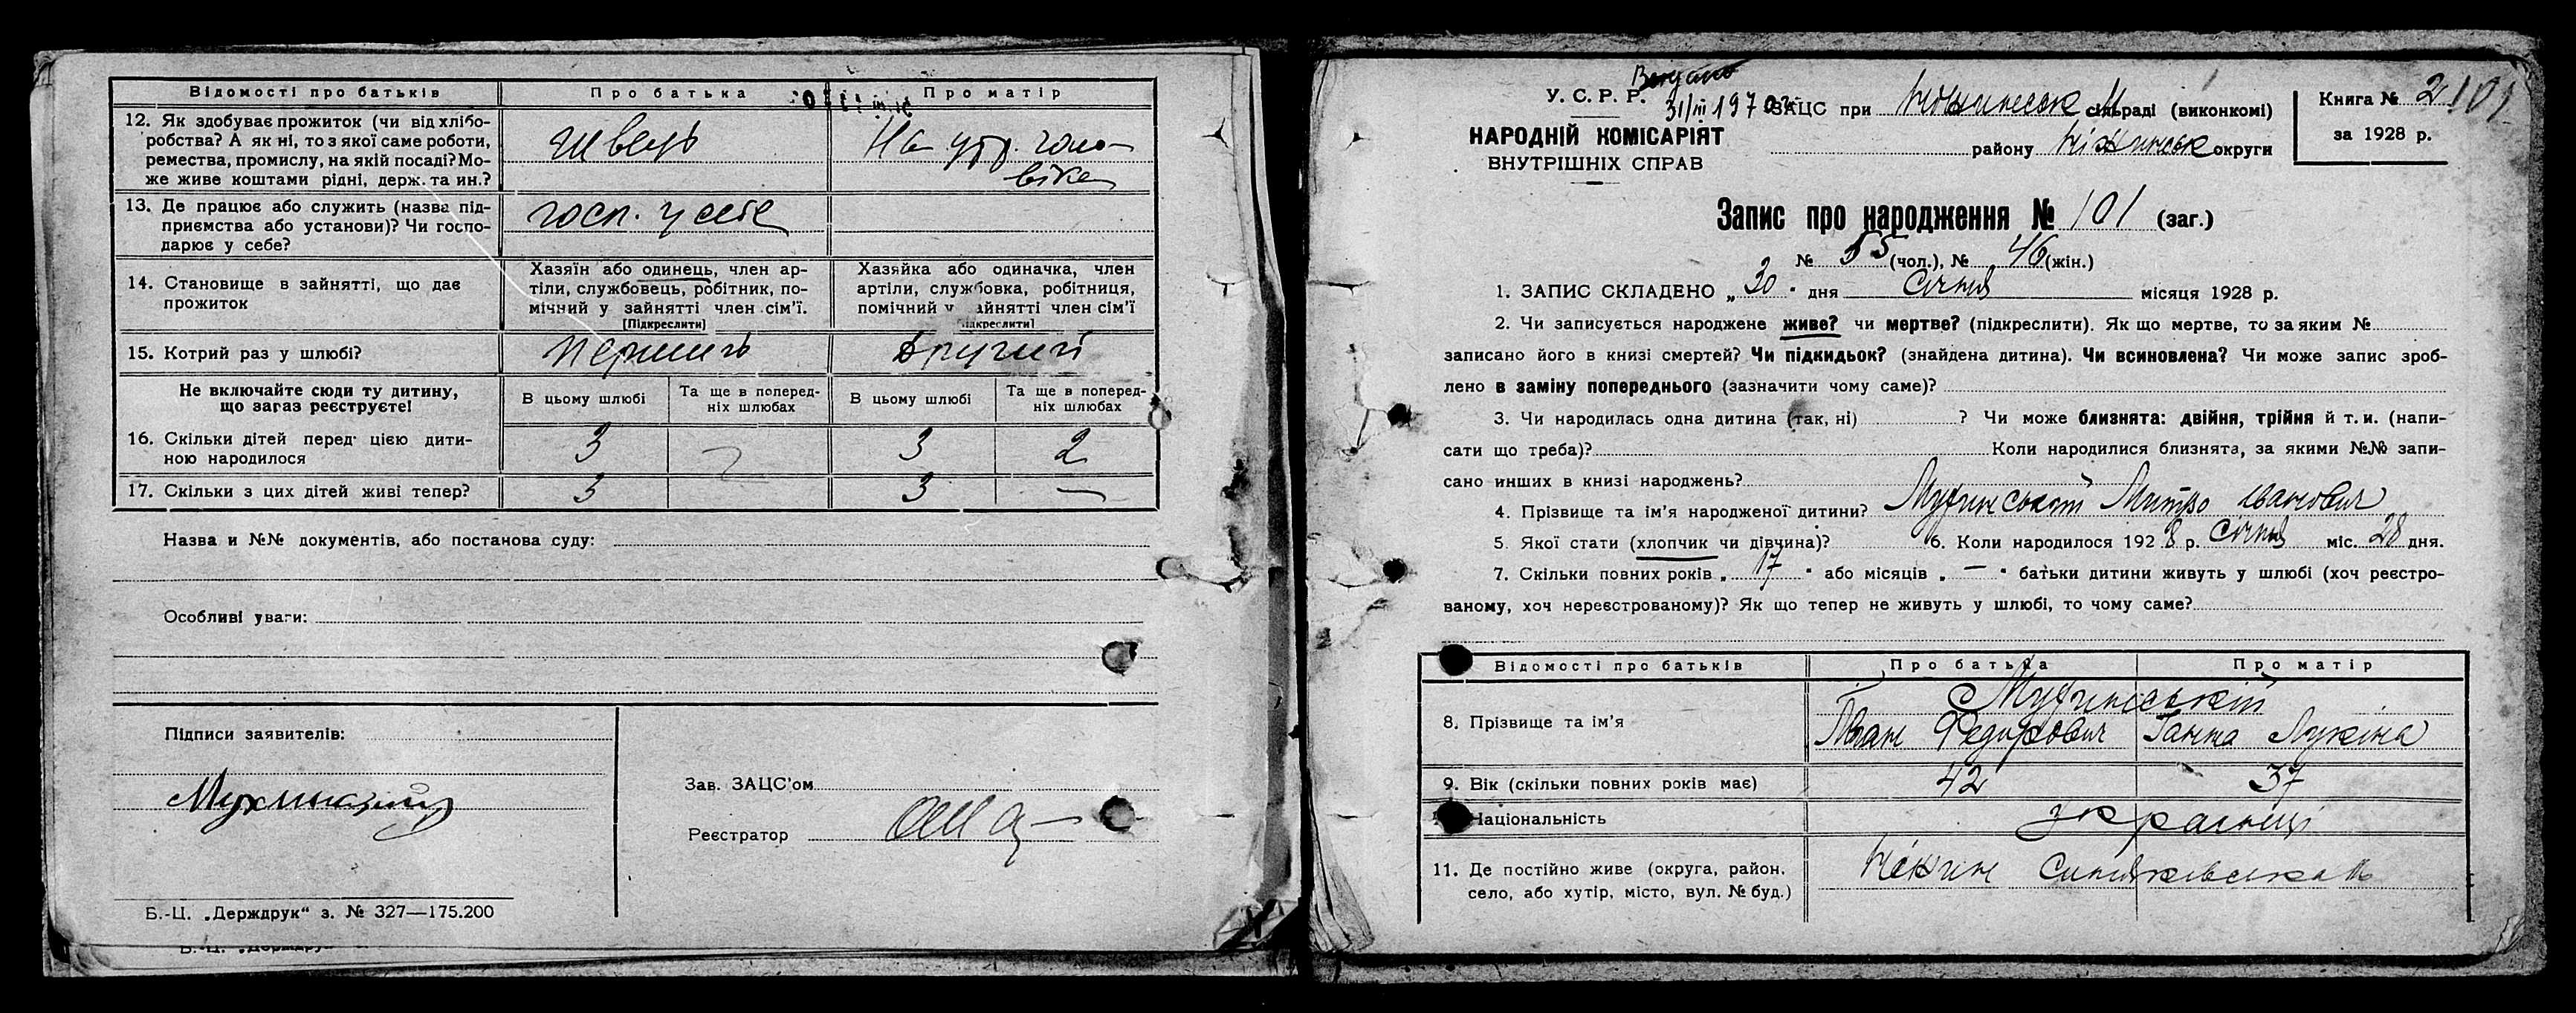 Відомості про батьків Про батька Про матір
12. Як здобуває прожиток (чи від хлібо-
робства? А як ні, то з якої саме роботи,
ремества, промислу, на якій посаді? Мо-
же живе коштами рідні, держ. та ин.?
швець
На утр. чоло-
віка
13. Де працює або служить (назва під-
приємства або установи)? Чи госпо-
дарює у себе?
госп. у себе
14. Становище в зайнятті, що дає
прожиток
Хазяїн або одинець, член ар-
тіли, службовець, робітник, по-
мічний у зайнятті член сім’ї.
[Підкреслити]
Хазяйка або одиначка, член
артіли, службовка, робітниця,
помічний у зайнятті член сім’ї
[Підкреслити]
15. Котрий раз у шлюбі? перший другий
Не включайте сюди ту дитину,
що зараз реєструєте!
В цьому шлюбі
Та ще в поперед-
ніх шлюбах
В цьому шлюбі
Та ще в поперед-
ніх шлюбах
16. Скільки дітей перед цією дити-
ною народилося
3 3 2
17. Скільки з цих дітей живі тепер? 3 3 —
Назва и №№ документів, або постанова суду:
Особливі уваги:
Підписи заявителів:
Зав. ЗАЦС’ом
Реєстратор
Б.-Ц. „Держдрук“ з. № 327—175.200
У. С. Р. Р.
31/III 1970
НАРОДНІЙ КОМІСАРІЯТ
ВНУТРІШНІХ СПРАВ
ЗАЦС при Ніжинськ М сільраді (виконкомі)
району Ніжинськ округи
Книга № 2
за 1928 р.
101
Запис про народження № 101 (заг.)
№ 55 (чол.), № 46 (жін.)
1. ЗАПИС СКЛАДЕНО „30“ дня Січня місяця 1928 р.
2. Чи записується народжене живе? чи мертве? (підкреслити). Як що мертве, то за яким №
записано його в книзі смертей? Чи підкидьок? (знайдена дитина). Чи всиновлена? Чи може запис зроб-
лено в заміну попереднього (зазначити чому саме)?
3. Чи народилась одна дитина (так, ні) ? Чи може близнята: двійня, трійня й т. и. (напи-
сати що треба)? Коли народилися близнята, за якими №№ запи-
сано инших в книзі народжень?
4. Прізвище та ім’я народженої дитини? Мухинський Митро Іванович
5. Якої стати (хлопчик чи дівчина)? 6. Коли народилося 1928 р. Січня міс. 28 дня.
7. Скільки повних років „17“ або місяців „—“ батьки дитини живуть у шлюбі (хоч реєстро-
ваному, хоч нереєстрованому)? Як що тепер не живуть у шлюбі, то чому саме?
Відомості про батьків Про батька Про матір
8. Прізвище та ім’я
Мухинській
Іван Федорович Ганна Лукіна
9. Вік (скільки повних років має) 42 37
Національність українці
11. Де постійно живе (округа, район,
село, або хутір, місто, вул. № буд.)
Ніжин Синяківська